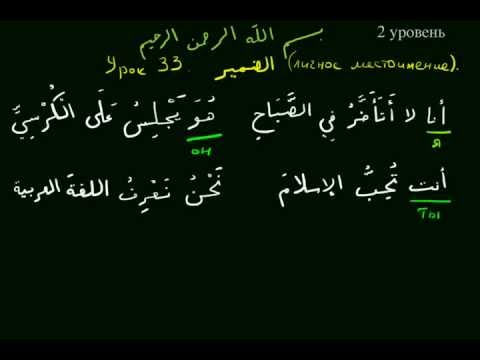 2 уровень
بسم الله الرحمن الرحيم
Урок 33. الضمير (личное местоимение).
أنا لا أَتَأَخَّرُ فِي الصَّبَاحِ هُوَ يَجْلِسُ عَلَى الْكُرْسِيِّ
я он
أنت تُحِبُّ الإسلامَ نَحْنُ نَعْرِفُ اللغة العربية
ты